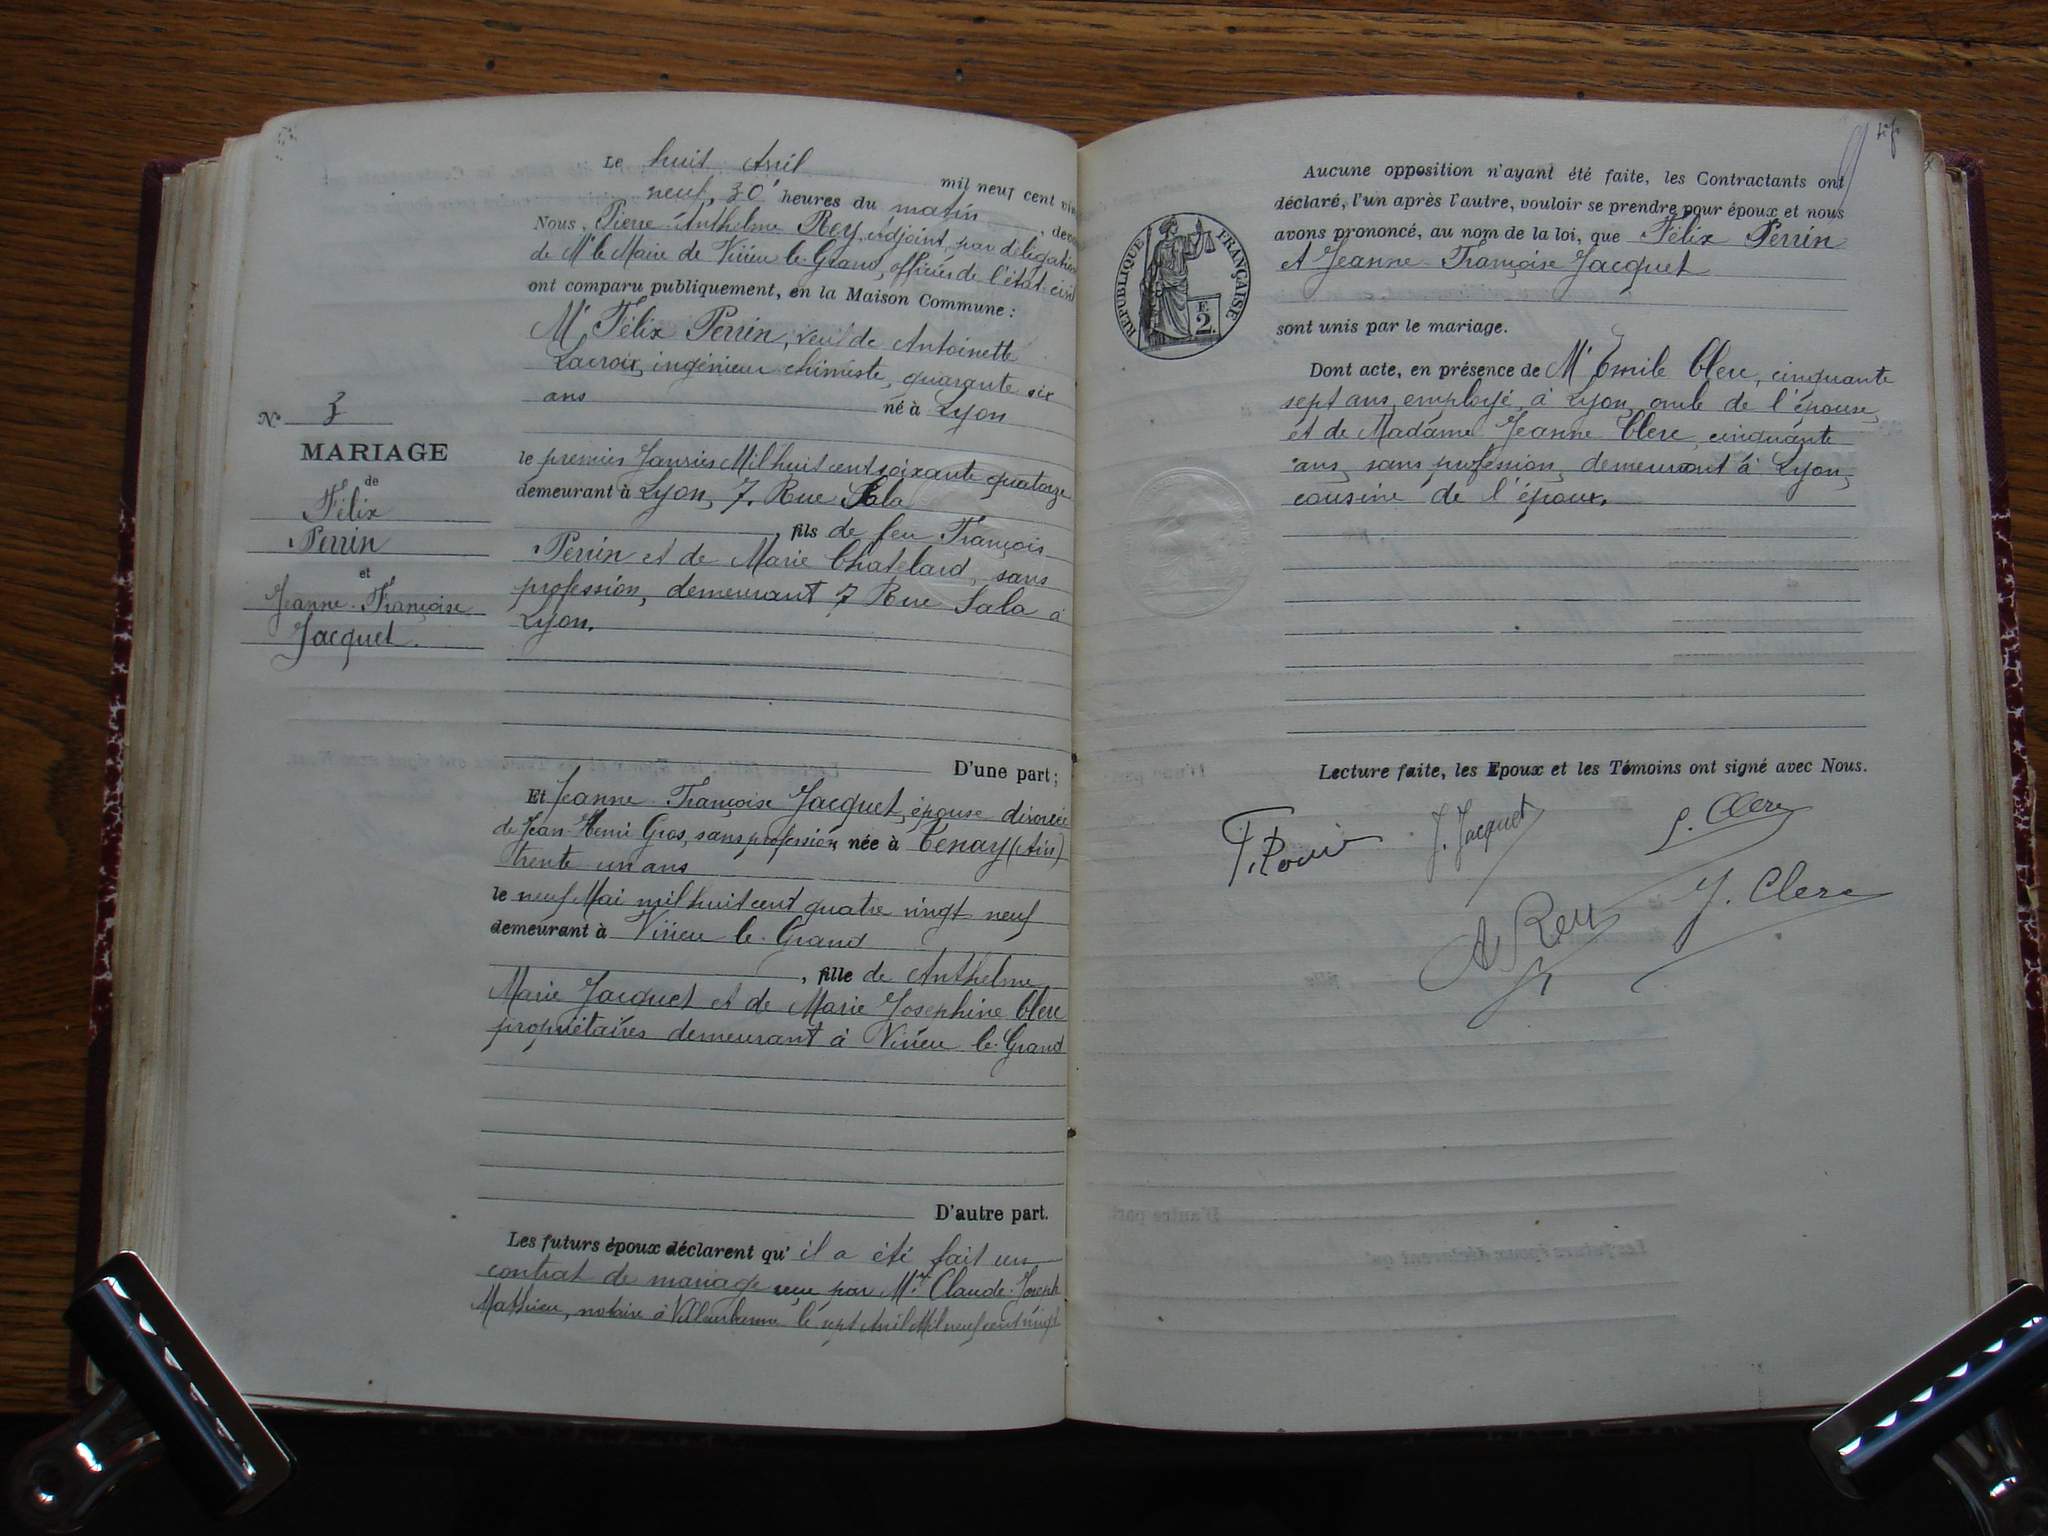 Le huit Avril mil neuf cent vin
neuf, 30' heures du matin, deva
Nous, Pierre-Anthelme Rey, adjoint, par délégation
de Mr le Maire de Virieu-le-Grand, officier de l'état-civil
ont comparu publiquement, en la Maison Commune :
Mr Félix Perrin, veuf de Antoinette
Lacroix, ingénieur chimiste, quarante six
ans né à Lyon
le premier Janvier Mil huit cent soixante quatorze
demeurant à Lyon, 7, Rue Sala
, fils de feu François
Perrin et de Marie Chatelard, sans
profession, demeurant 7 Rue Sala à
Lyon.
D'une part ;
Et Jeanne-Françoise Jacquet, épouse divorcée
de Jean-Henri Gros, sans profession, née à Tenay (Ain)
trente un ans
le neuf Mai mil huit cent quatre vingt neuf
demeurant à Virieu le-Grand
, fille de Anthelme
Marie Jacquet et de Marie Josephine Clerc
propriétaires demeurant à Virieu le-Grand
D'autre part.
Les futurs époux déclarent qu' il a été fait un
contrat de mariage reçu par Me Claude-Joseph
Mathieu, notaire à Villeurbanne le sept Avril Mil neuf cent vingt
No 3
MARIAGE
de
Félix
Perrin
et
Jeanne-Françoise
Jacquet.
Aucune opposition n'ayant été faite, les Contractants ont
déclaré, l'un après l'autre, vouloir se prendre pour époux et nous
avons prononcé, au nom de la loi, que Félix Perrin
et Jeanne-Françoise Jacquet
sont unis par le mariage.
REPUBLIQUE FRANÇAISE
F.
2.
Dont acte, en présence de Mr Emile Clerc, cinquante
sept ans, employé à Lyon, oncle de l'épouse,
et de Madame Jeanne Clerc, cinquante
ans, sans profession, demeurant à Lyon,
cousine de l'époux.
Lecture faite, les Epoux et les Témoins ont signé avec Nous.
F. Perrin J. Jacquet
Clerc
A Rey J. Clerc